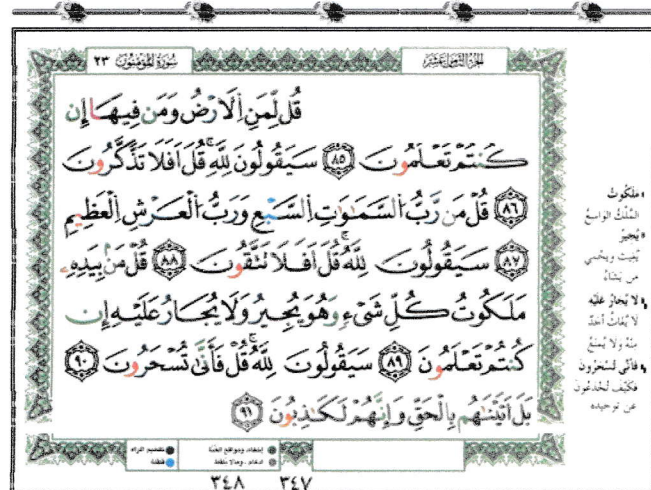 الجُزْءُ الثَّامِنَ عَشَرَ
سُورَةُ المُؤْمِنُونَ ٢٣
قُل لِّمَنِ اِ۬لَارْضُ وَمَن فِيهَا إِن
كُنتُمْ تَعْلَمُونَ ٨٥ سَيَقُولُونَ لِلهِ قُلَ اَفَلَا تَذَّكَّرُونَ
٨٦ قُلْ مَن رَّبُّ اُ۬لسَّمَٰوَٰتِ اِ۬لسَّبْعِ وَرَبُّ اُ۬لْعَرْشِ اِ۬لْعَظِيمِ
٨٧ سَيَقُولُونَ لِلهِ قُلَ اَفَلَا تَتَّقُونَ ٨٨ قُلْ مَنۢ بِيَدِهِۦ
مَلَكُوتُ كُلِّ شَيْءٖ وَهُوَ يُجِيرُ وَلَا يُجَارُ عَلَيْهِ إِن
كُنتُمْ تَعْلَمُونَ ٨٩ سَيَقُولُونَ لِلهِ قُلْ فَأَنّ۪يٰ تُسْحَرُونَ ٩٠
بَلَ اَتَيْنَٰهُم بِالْحَقِّ وَإِنَّهُمْ لَكَٰذِبُونَ ٩١
مَلَكُوتُ
المُلْكُ الواسِعُ
يُجِيرُ
يُغِيث ويَحْمِي
من يَشَاءُ
لا يُجَارُ عَلَيْهِ
لا يُغَاثُ أحَدٌ
مِنْهُ ولا يُمْنَعُ
فأنَّى تُسْحَرُونَ
فكَيْفَ تُخْدَعُونَ
عن توحيده
إخفاء، ومواقع الغنّة
تفخيم الراء
ادغام، ومالا يلفظ
قلقلة
٣٤٧
٣٤٨